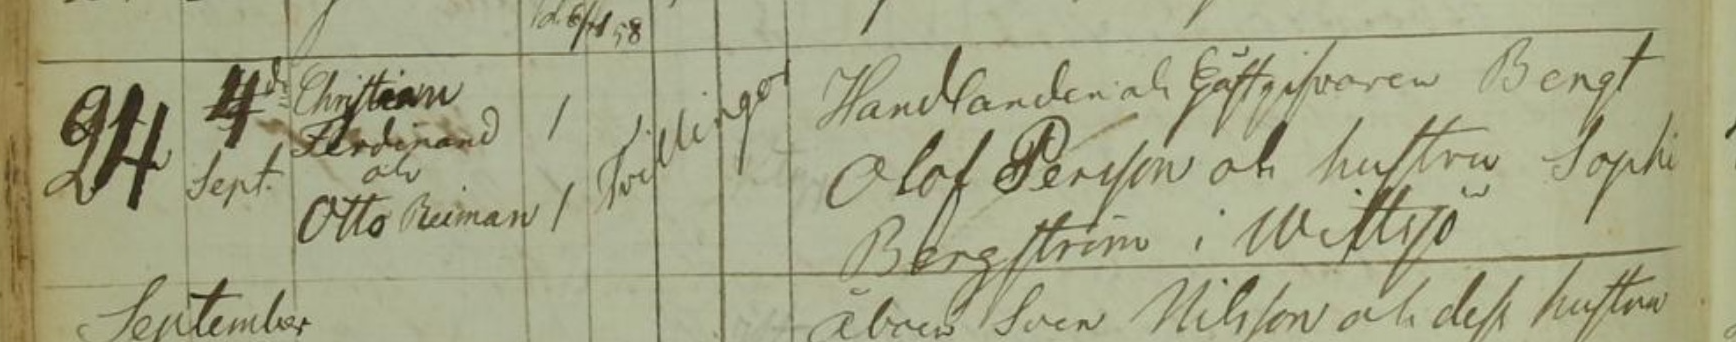 d. 6/11 58
24 4de Christian 1 Handlanden och Gästgifvaren Bengt
Sept. Ferdinand Tvillingar Olof Persson och hustru Sophi
och
Otto Reiman 1 Bergström i Wittsjö
September Åboen Sven Nilsson och dess hustru